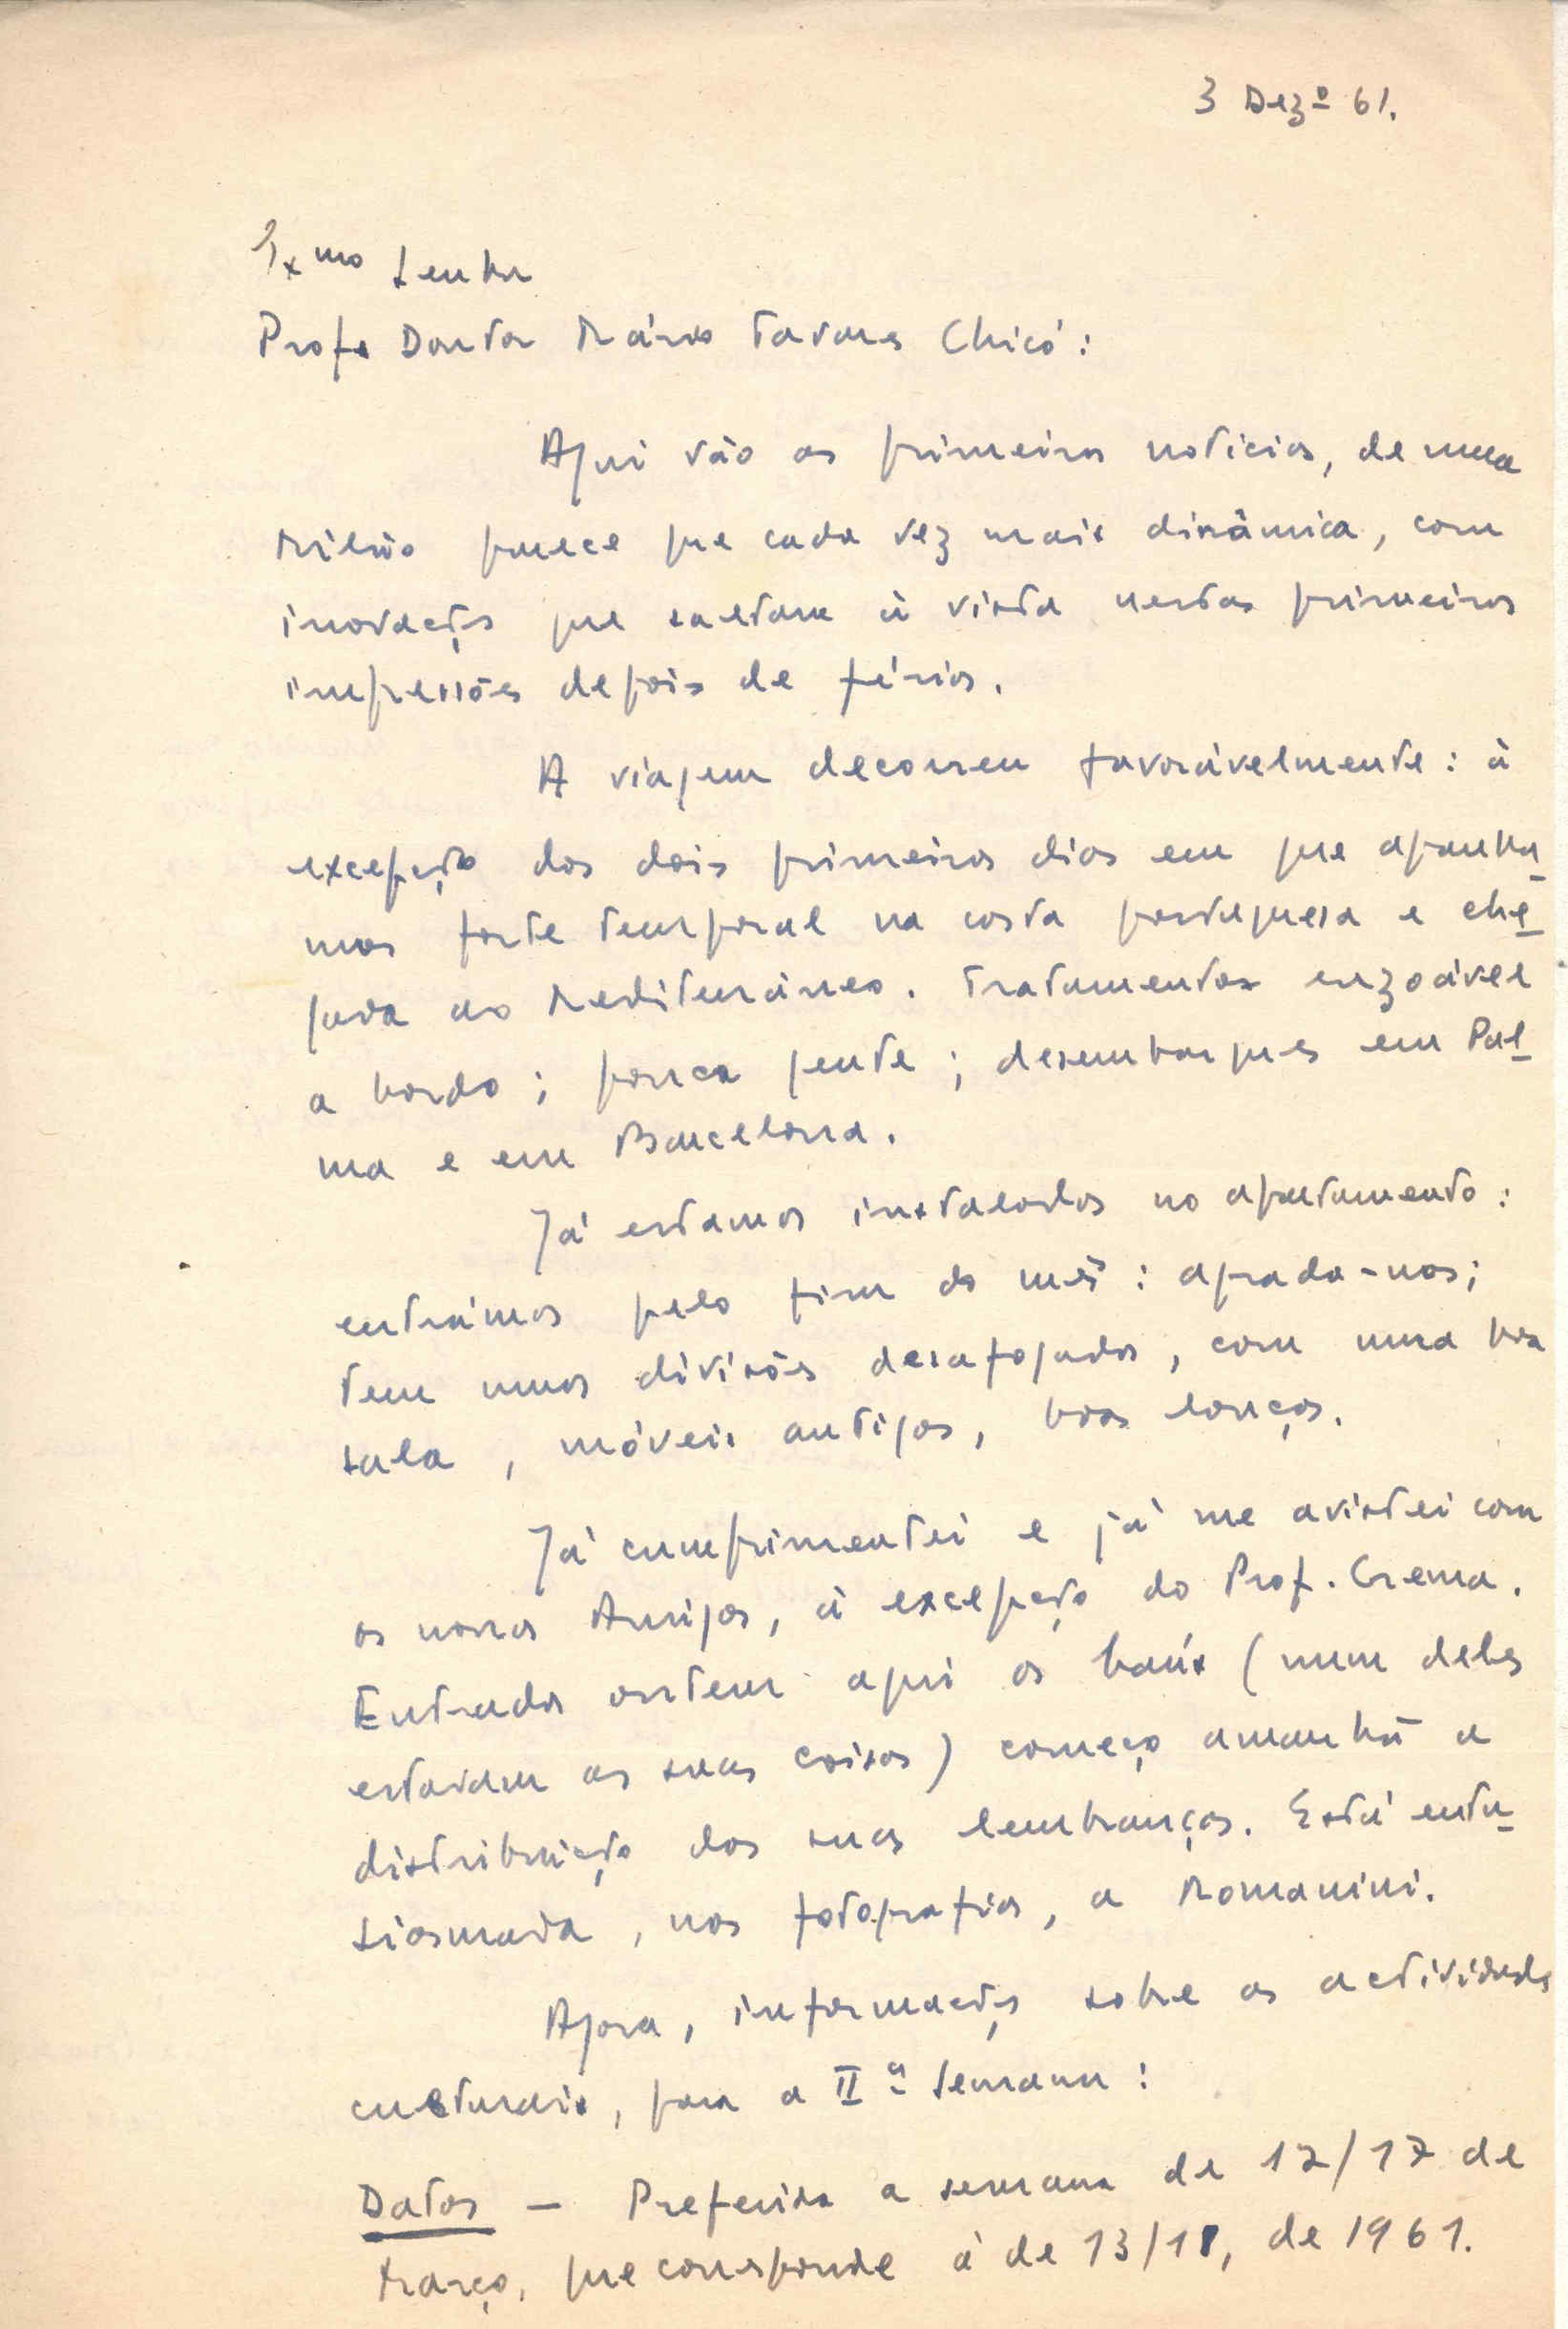 3 Dezº 61.
Exmo Senhor
Profe Doutor Mário Tavares Chicó:
Aqui vão as primeiras notícias, de uma
Milão parece que cada vez mais dinâmica, com
inovações que saltam à vista nestas primeiras
impressões depois de férias.
A viagem decorreu favoràvelmente: à
excepção dos dois primeiros dias em que apanha-
mos forte temporal na costa portuguesa e che-
gada ao Mediterrâneo. Tratamentos enzoável
a bordo; pouca gente; desembarques em Pal-
ma e em Barcelona.
Já estamos instalados no apartamento:
entrámos pelo fim do mês: agrada-nos;
tem umas divisões desafogadas, com uma boa
sala, móveis antigos, boas louças.
Já cumprimentei e já me avistei com
os nossos Amigos, à excepção do Prof. Crema.
Entrados ontem aqui os baús (num deles
estavam as suas coisas) começo amanhã a
distribuição das suas lembranças. Está entu-
siasmada, nas fotografias, a Romanini.
Agora, informações sobre as actividades
culturais, para a IIª Semana:
Datas – Preferida a semana de 12/17 de
Março, que corresponde à de 13/18, de 1961.